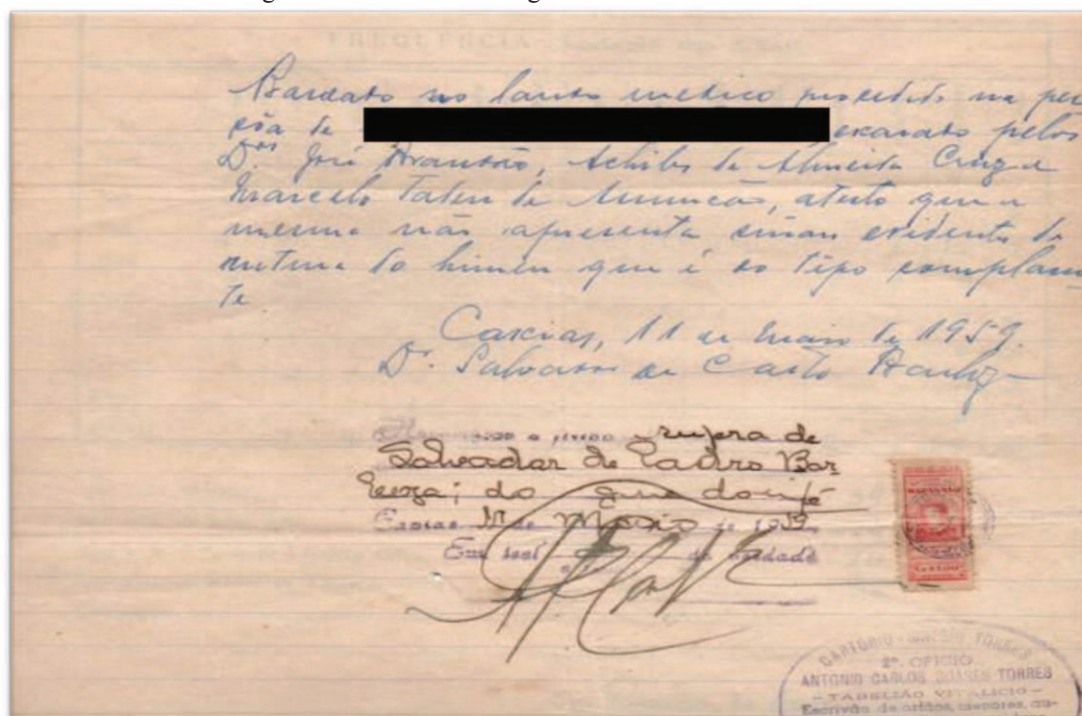 Baseado no laudo medico procedido na pes
sôa de exarado pelos
Drs José Brandão, Achiles de Almeida Cruz e
Marcelo de Assunção, atesto que a
mesma não apresenta sinais evidentes de
rutura do himen que é do tipo complacen
te
Caxias, 11 de Maio de 1959.
Dr. Salvador de Castro Barbosa
Reconheço a firma supra de
Salvador de Castro Bar
do que dou fé
Caxias 11 de Maio de 1959
Em test da verdade
CARTORIO TORRES
2º. OFICIO
ANTONIO CARLOS SOARES TORRES
— TABELIÃO VITALICIO —
Escrivão de orfãos, menores, au-